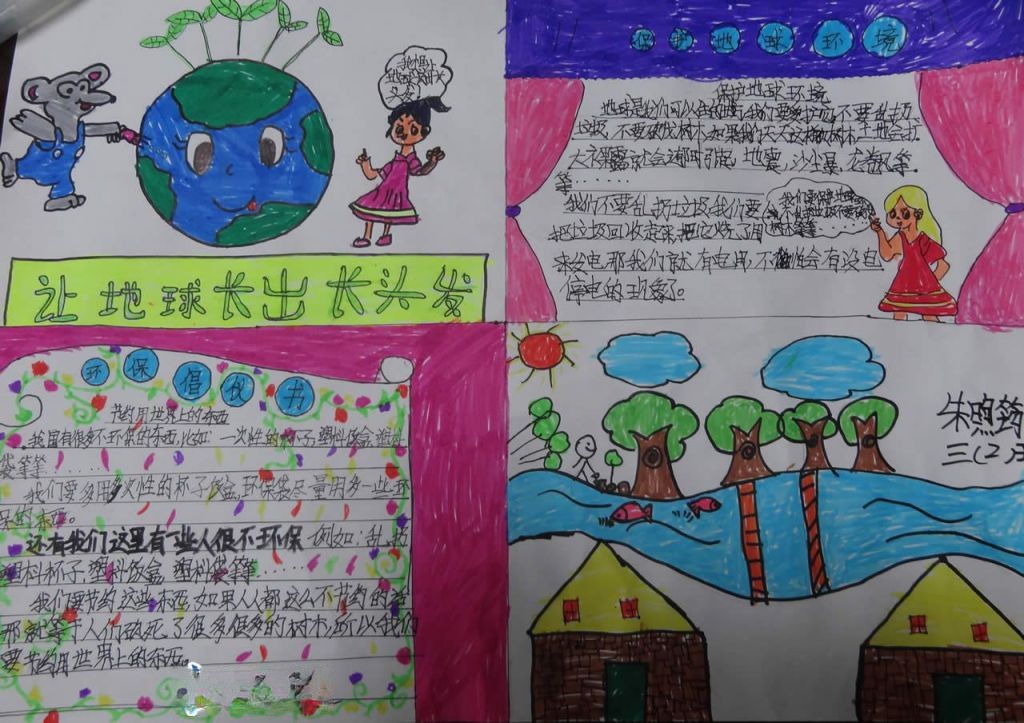 让地球长出长头发
保护地球环境
保护地球环境
地球是我们可以
不要乱扔
垃圾，不要砍伐树木，如果我们天天这样砍树木，土地会扩
大
就会
引起，地震，沙尘暴，龙卷风等
等……
我们不要乱扔垃圾，我们要
把垃圾回收起来，把它烧了用
来发电，那我们就有电用，不
会有没电
停电的现象了。
环保倡议书
节约用世界上的东西
我国有很多不环保的东西，比如一次性的杯子，塑料饭盒，塑料
袋等等……
我们要多用多次性的杯子饭盒，环保袋尽量用多一些环
保的东西。
还有我们这里有一些人很不环保，例如：乱扔
塑料杯子，塑料饭盒，塑料袋等……
我们要节约这些东西，如果人人都这么不节约的话，
那就等于人们砍死了很多很多的树木，所以我们
要节约用世界上的东西。
朱煦筠
三(2)